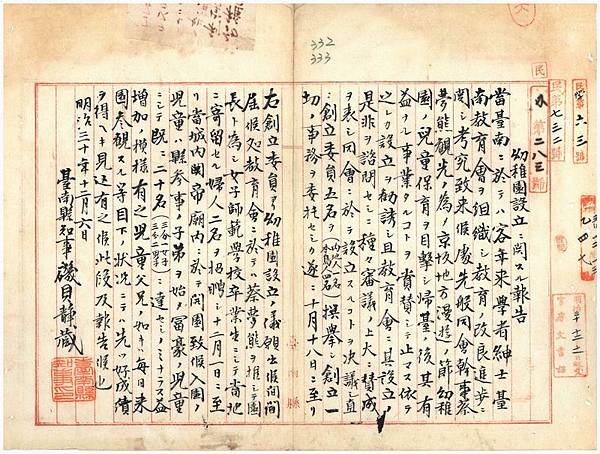 332
333
幼稚園設立ニ関スル報告
當臺南ニ於テハ客年来學者紳士臺
南教育會ヲ組織シ教育ノ改良進歩ニ
関シ考究致来候處先般同會幹事蔡
夢熊観光ノ為ノ京坂地方漫遊ノ節幼稚
園ノ児童保育ヲ目撃シ帰臺ノ後其有
益ナル事業ナルコトヲ賞賛シテ止マス依テ
之レカ設立ヲ勧誘シ且教育會ニ其設立ノ
是非ヲ諮問セシニ種々審議ノ上大ニ賛成
ヲ表シ同會ニ於テ設立スルコトヲ决議シ直
ニ創立委員五名ヲ撰挙シ創立一
切ノ事務ヲ委托セシニ遂ニ十月十八日ニ至リ
右創立委員ヨリ幼稚園設立ノ儀願出候間
届候処教育會ニ於テハ蔡夢熊ヲ推シテ園
長ト為シ女子師範學校卒業生ニシテ當地
ニ寄留セル婦人二名ヲ招聘シ十二月一日ニ至
リ當城内関帝廟内ニ於テ開園致候入園ノ
児童ハ縣参事ノ子弟ヲ始メ冨豪ノ児童
ニシテ既ニ二十名ニ達セシノミナラス益
増加ノ模様有之児童父兄ノ如キ毎日来
園参観スル等目下ノ状况ニテハ先ツ好成績
ヲ得ヘキ見込有之候此段及報告候也
明治三十年十二月六日
臺南縣知事磯貝静藏